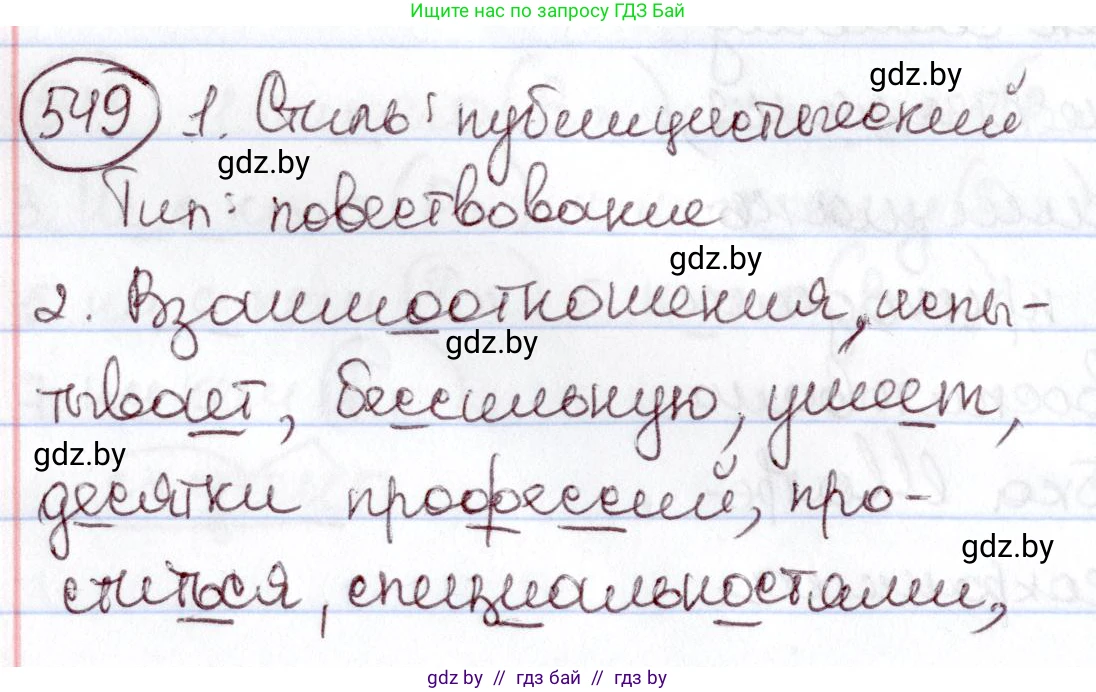 Ищите нас по запросу ГДЗ Бай
gdz.by
549 1. Стиль: публицистический
gdz.by
Тип: повествование
gdz.by
2. Взаимоотношения, испы-
gdz.by
тывает, бессильную, умеет,
gdz.by
десятки профессий, про-
gdz.by
ститься, специальностями,
gdz.by // gdz бай // gdz by